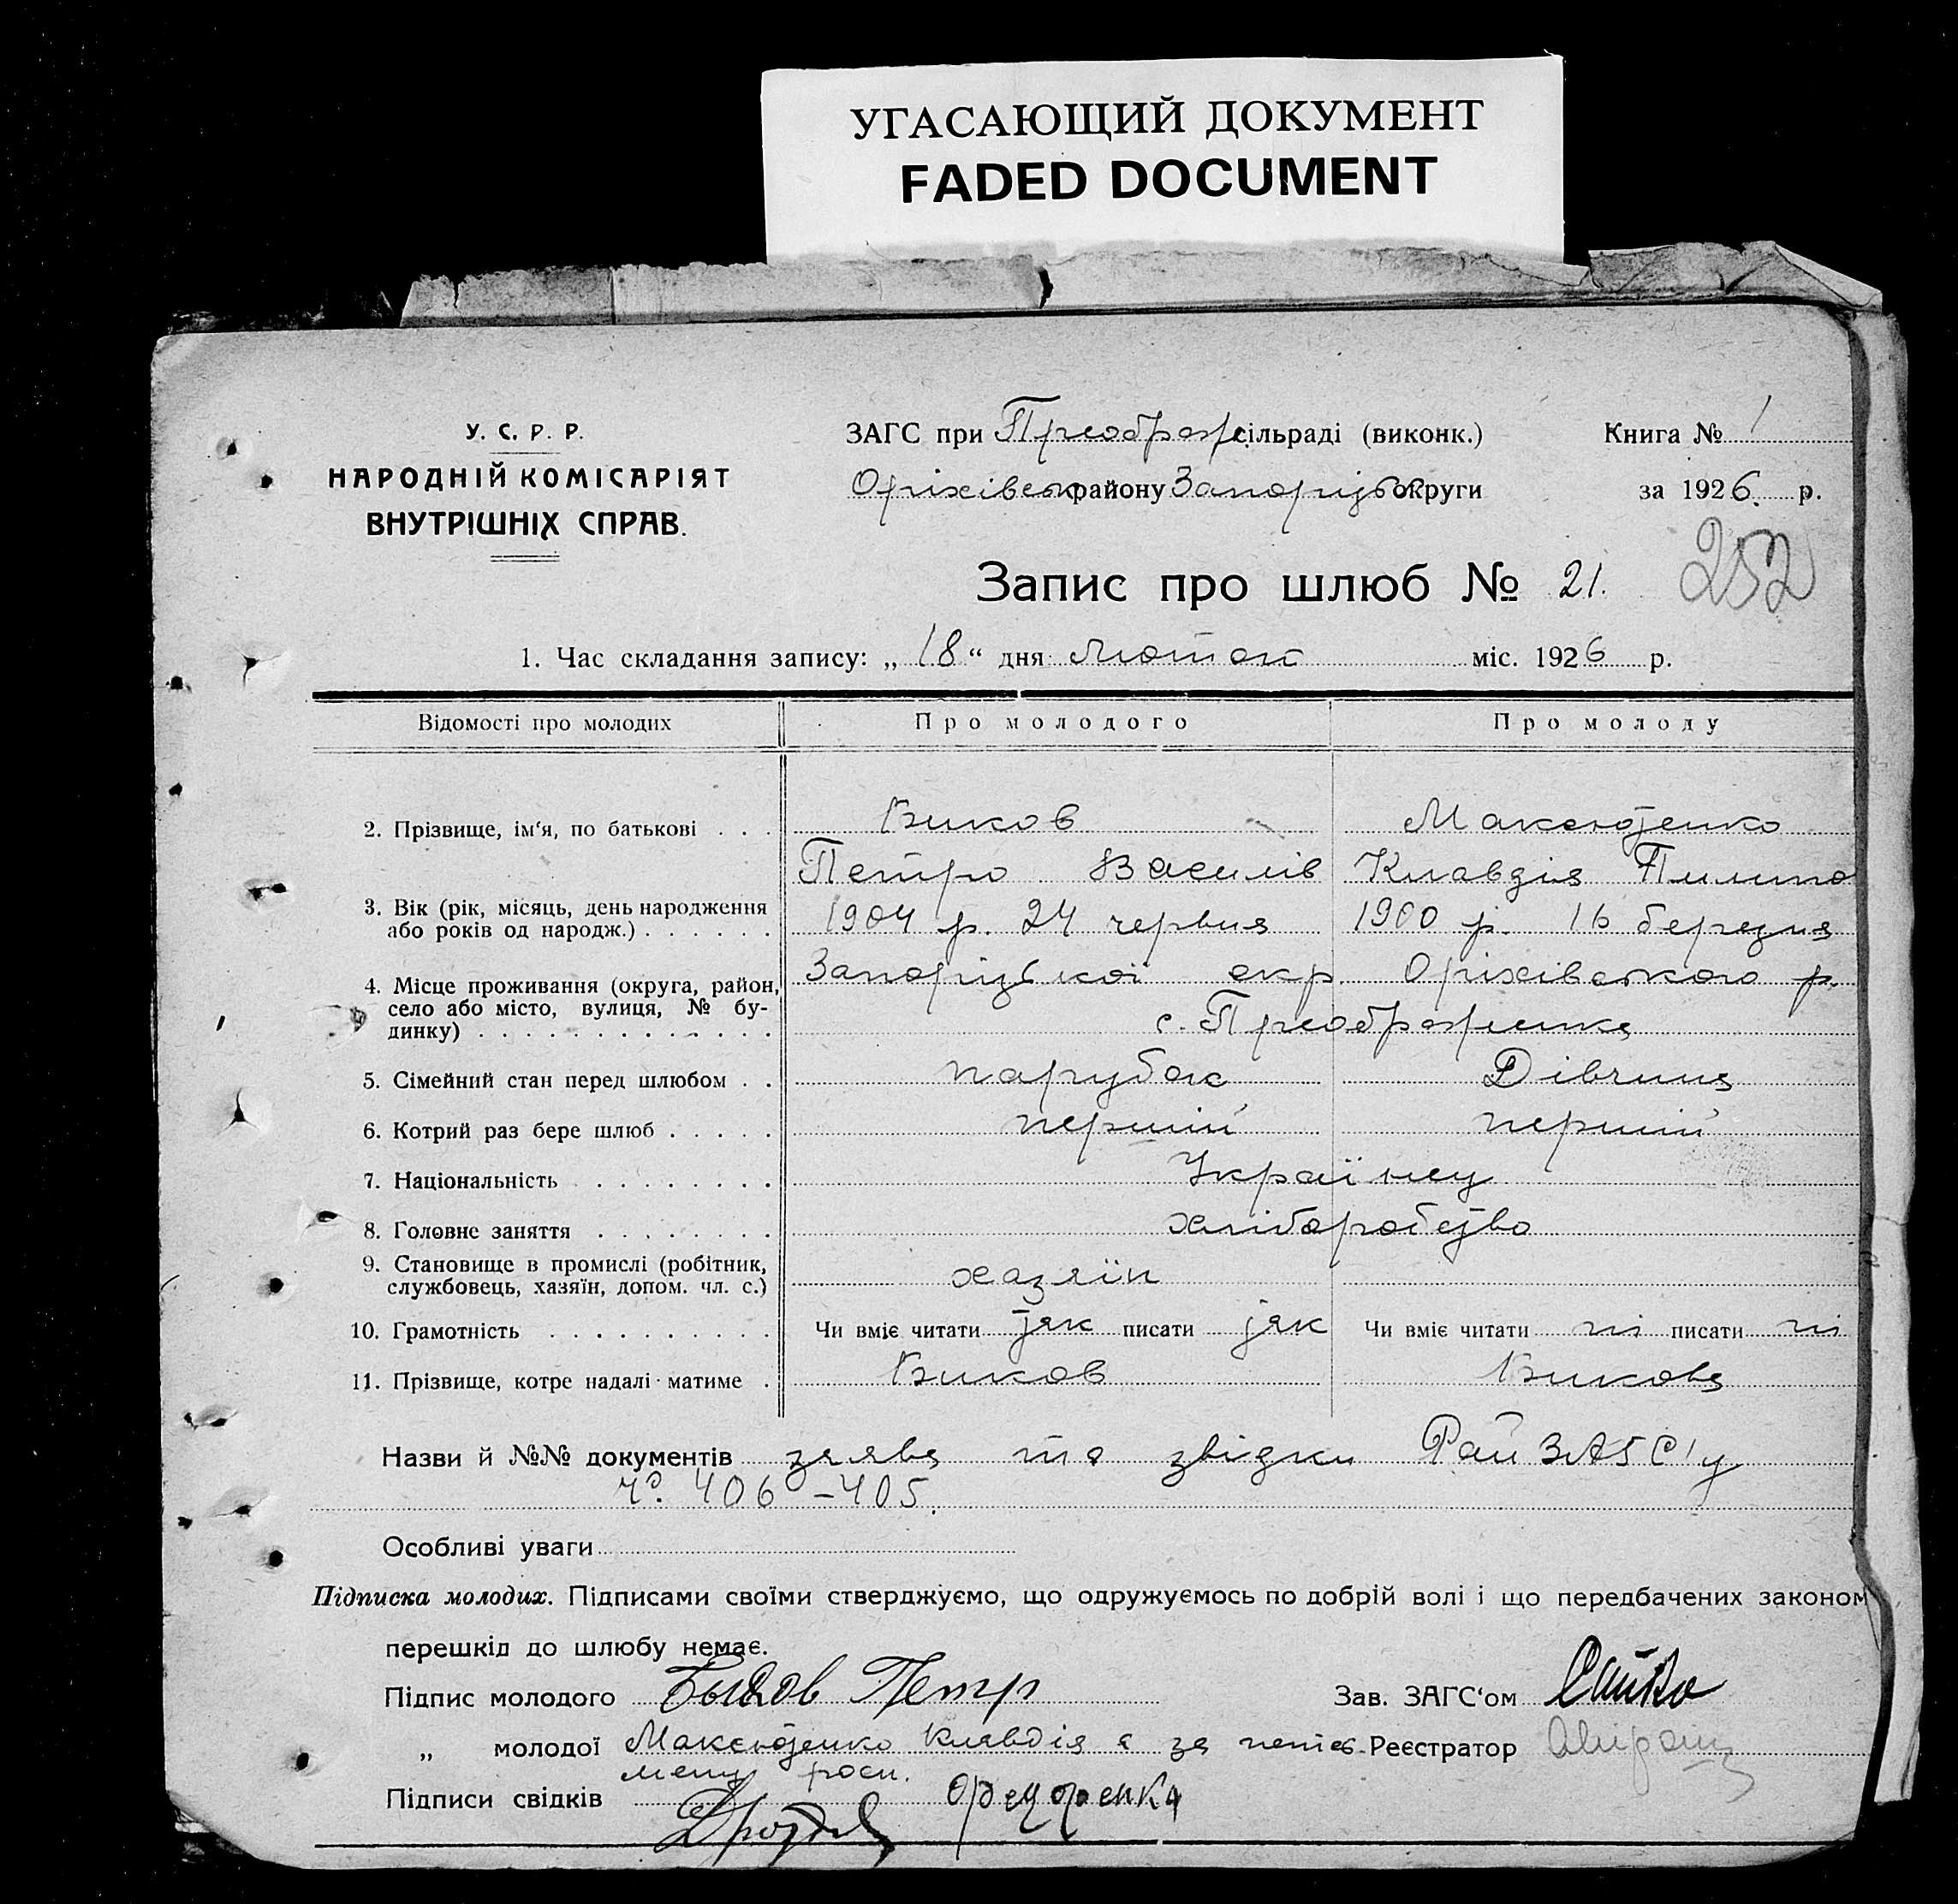 УГАСАЮЩИЙ ДОКУМЕНТ
FADED DOCUMENT
У. С. Р. Р.
НАРОДНІЙ КОМІСАРІЯТ
ВНУТРІШНІХ СПРАВ.
ЗАГС при Преображ. сільраді (виконк.)
Оріхівськ району Запорізьк округи
Книга № 1
за 1926. р.
Запис про шлюб № 21.
252
1. Час складання запису: „ 18 “ дня лютого міс. 1926 р.
Відомості про молодих
Про молодого
Про молоду
2. Прізвище, ім‘я, по батькові . . .
Биков
Петро Василів
Клавдія Пилипо
3. Вік (рік, місяць, день народження
або років од народж.) . . . . . .
1904 р. 24 червня
1900 р. 16 березня
4. Місце проживання (округа, район,
село або місто, вулиця, № бу-
динку) . . . . . . . . . . . . .
Запорізької окр. Оріхівського р.
с. Преображенка
5. Сімейний стан перед шлюбом . .
парубок
Дівчина
6. Котрий раз бере шлюб . . . . .
перший
перший
7. Національність . . . . . . . .
Українці
8. Головне заняття . . . . . . . .
хліборобство
9. Становище в промислі (робітник,
службовець, хазяїн, допом. чл. с.)
хазяїн
10. Грамотність . . . . . . . . . .
Чи вміє читати так писати так
Чи вміє читати ні писати ні
11. Прізвище, котре надалі матиме .
Биков
Бикова
Назви й №№ документів заява та звідки РайЗАГС'у
чо. 406 – 405.
Особливі уваги
Підписка молодих. Підписами своїми стверджуємо, що одружуємось по добрій волі і що передбачених законом
перешкід до шлюбу немає.
Підпис молодого Быков Петр
Зав. ЗАГС‘ом
„ молодої Клавдія а за непис.
Реєстратор
мену росп.
Підписи свідків